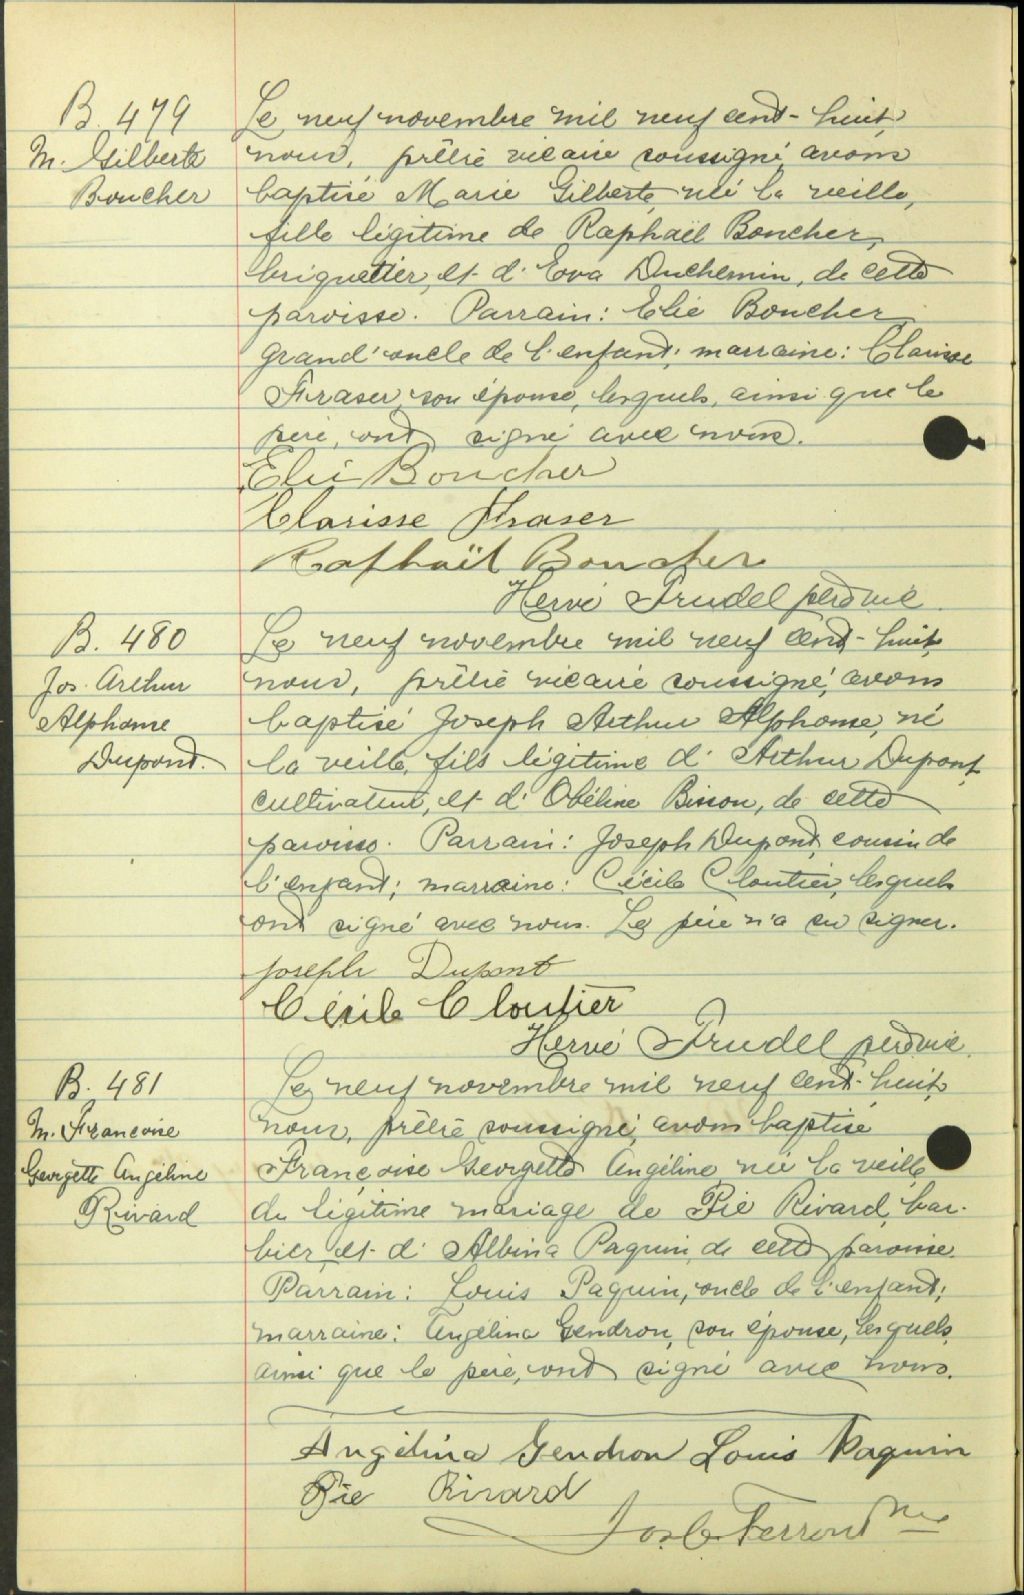 B. 479
M. Gilberte
Boucher
Le neuf novembre mil neuf cent-huit,
nous, prêtre vicaire soussigné, avons
baptisé Marie Gilberte, née la veille,
fille légitime de Raphaël Boucher,
briquetier, et d'Eva Duchemin, de cette
paroisse. Parrain: Elie Boucher
grand'oncle de l'enfant; marraine: Clarisse
Fraser, son épouse, lesquels, ainsi que le
père, ont signé avec nous.
Elie Boucher
Clarisse Fraser
Raphaël Boucher
Hervé Trudel ptre vic.
B. 480
Jos. Arthur
Alphonse
Dupond.
Le neuf novembre mil neuf cent-huit,
nous, prêtre vicaire soussigné, avons
baptisé Joseph Arthur Alphonse, né
la veille, fils légitime d'Arthur Dupont,
cultivateur, et d'Obéline Bisson, de cette
paroisse. Parrain: Joseph Dupond, cousin de
l'enfant; marraine: Cécile Cloutier, lesquels
ont signé avec nous. Le père n'a su signer.
Joseph Dupont
Cécile Cloutier
Hervé Trudel ptre vic.
B. 481
M. Françoise
Georgette Angéline
Rivard
Le neuf novembre mil neuf cent-huit,
nous, prêtre soussigné, avons baptisé
Françoise Georgette Angéline née la veille
du légitime mariage de Pie Rivard, bar-
bier et d'Albina Paquin, de cette paroisse.
Parrain: Louis Paquin, oncle de l'enfant;
marraine: Angélina Gendron, son épouse, lesquels,
ainsi que le père, ont signé avec nous.
Angélina Gendron Louis Paquin
Pie Rivard
Ferron